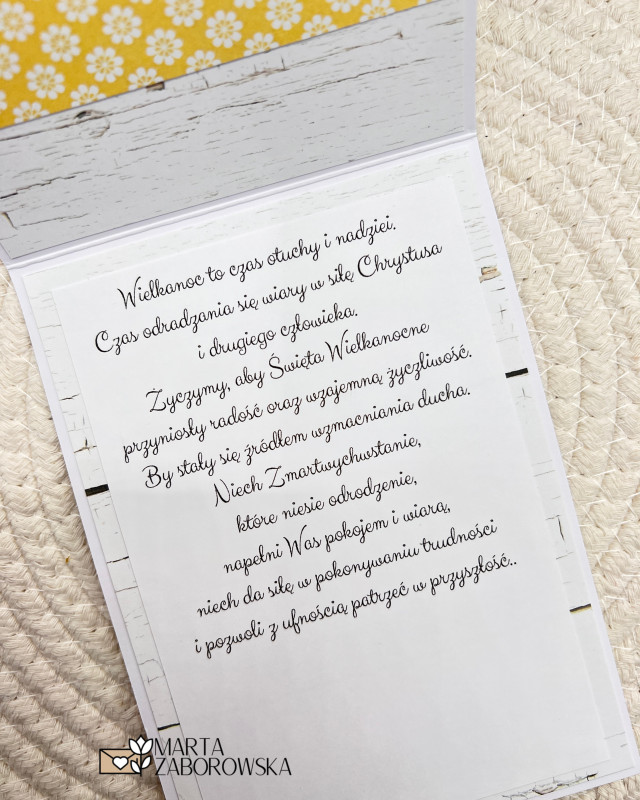 Wielkanoc to czas otuchy i nadziei.
Czas odradzania się wiary w siłę Chrystusa
i drugiego człowieka.
Życzymy, aby Święta Wielkanocne
przyniosły radość oraz wzajemną życzliwość.
By stały się źródłem wzmacniania ducha.
Niech Zmartwychwstanie,
które niesie odrodzenie,
napełni Was pokojem i wiarą,
niech da siłę w pokonywaniu trudności
i pozwoli z ufnością patrzeć w przyszłość..
MARTA
ZABOROWSKA